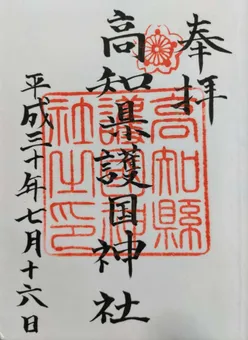 奉拝
高知県護国神社
高知縣護國神社之印
平成三十年七月十六日